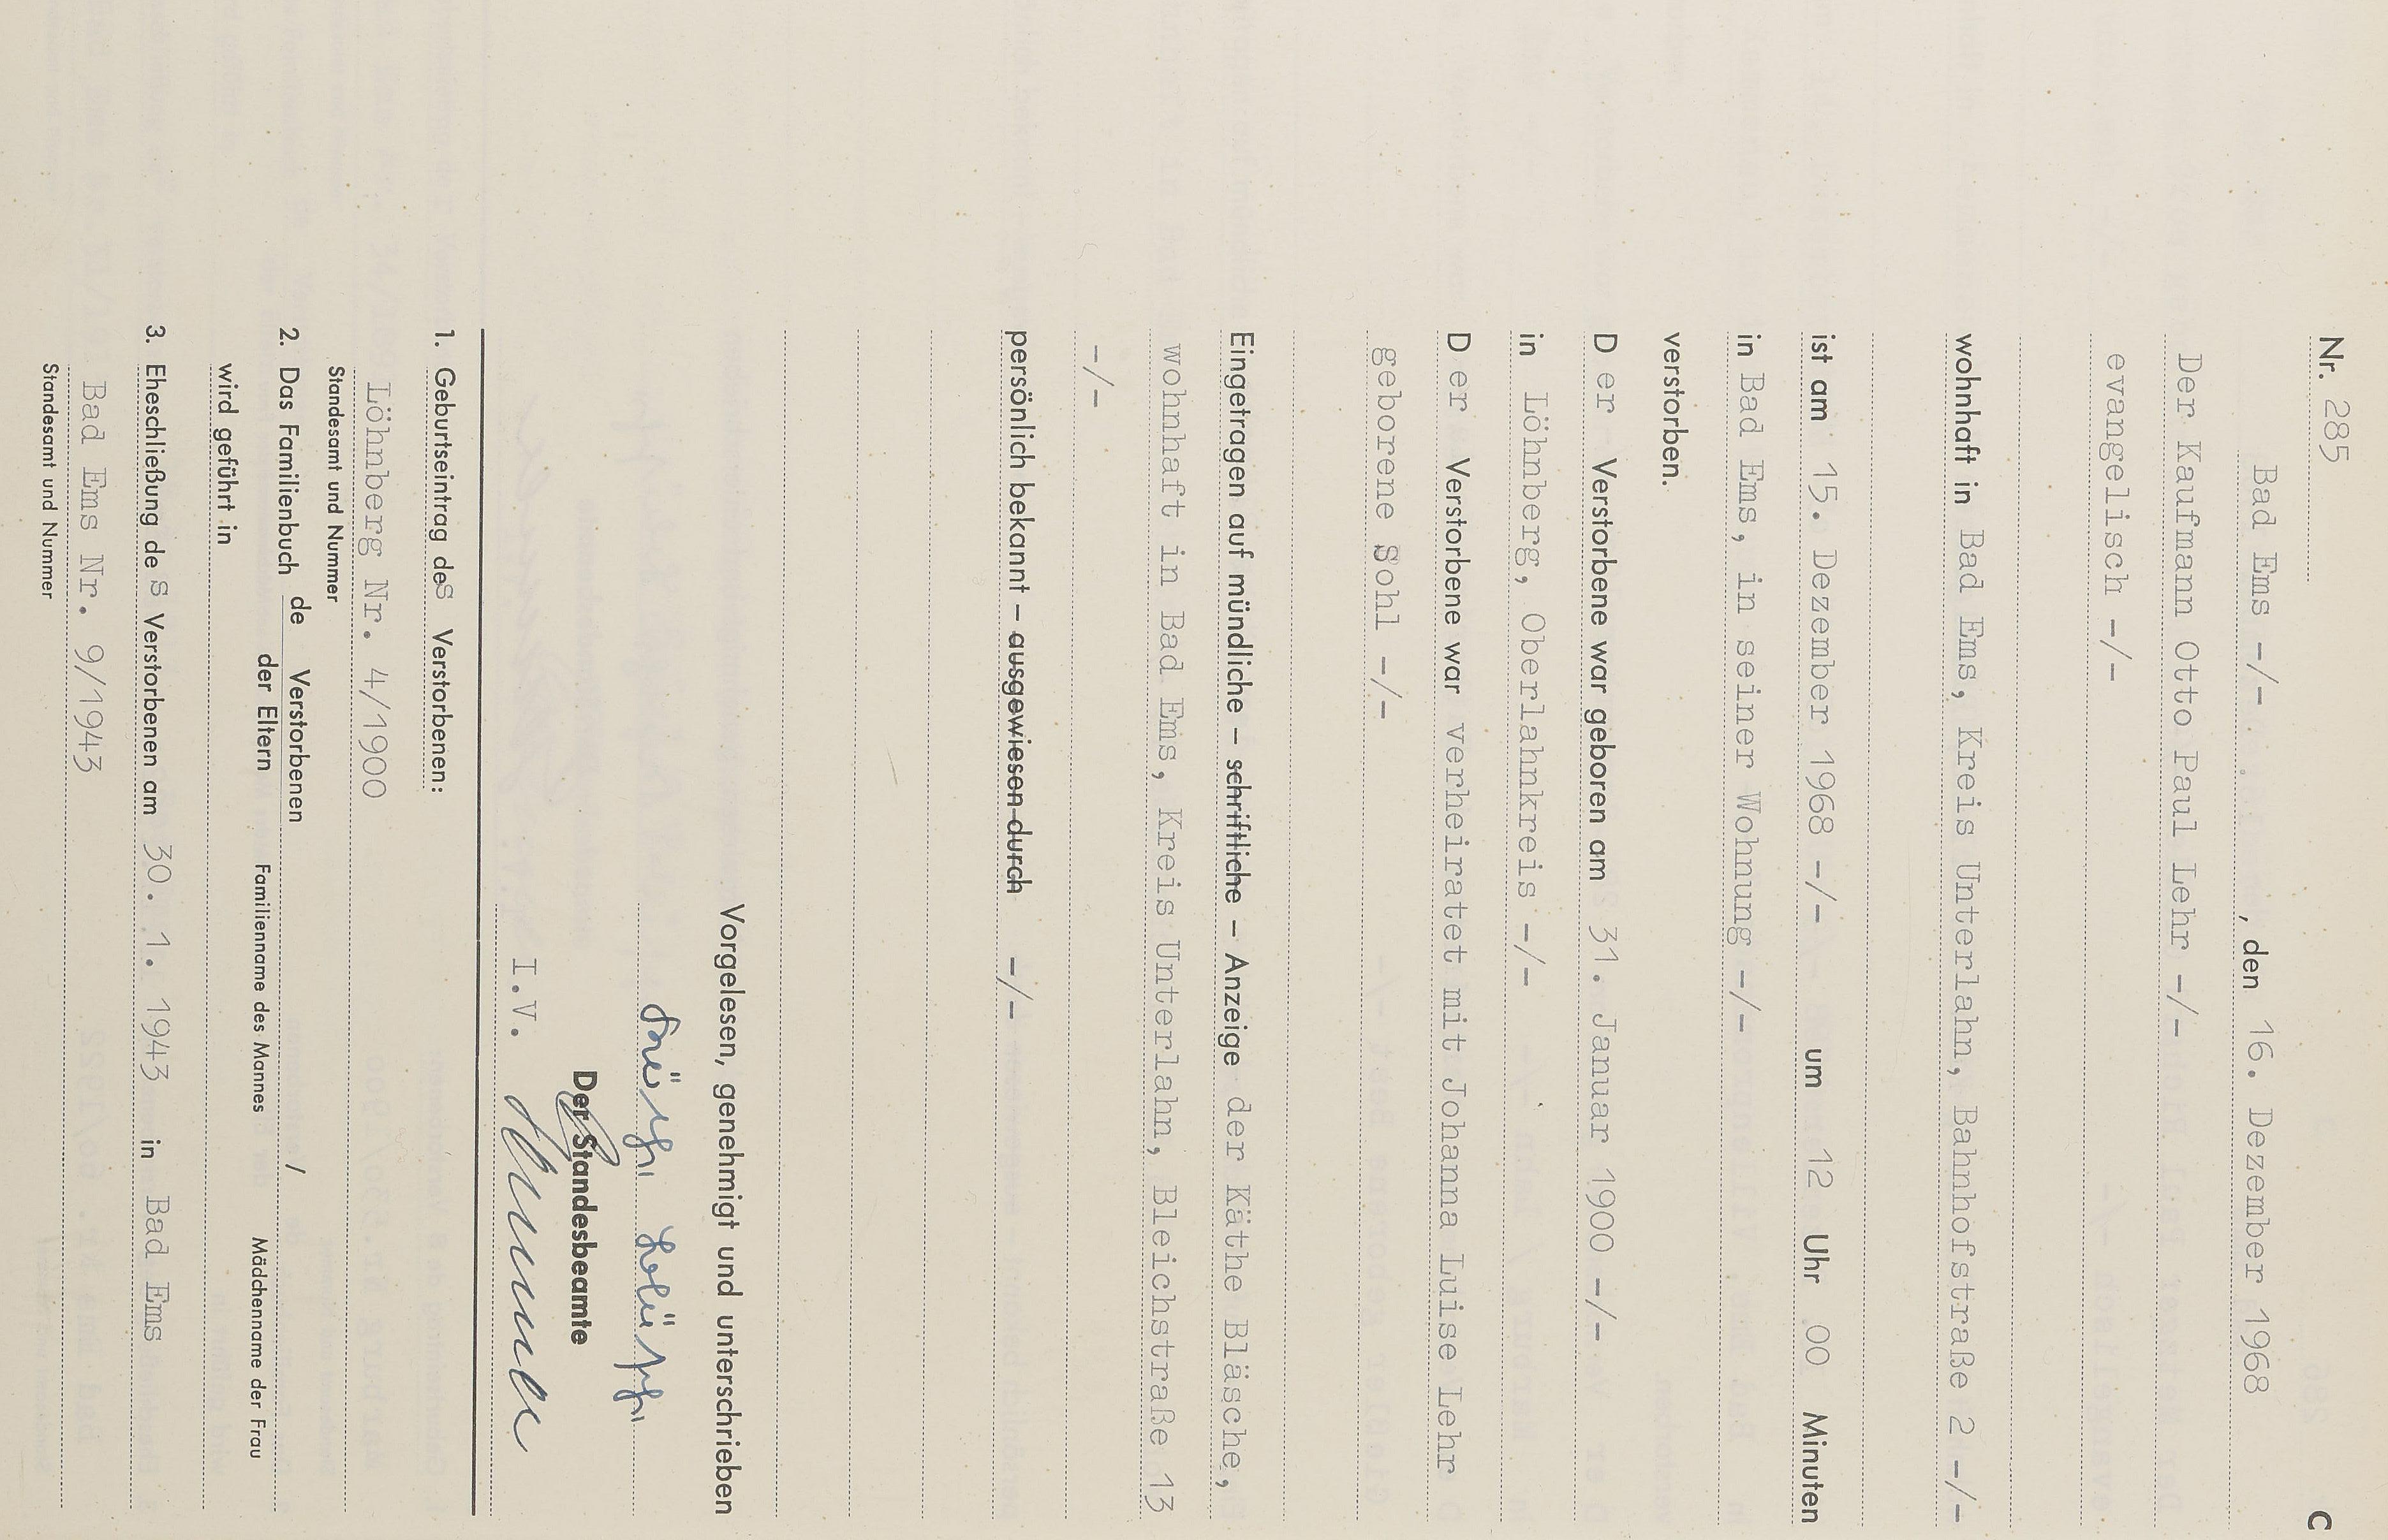 C
Nr. 285
Bad Ems -/- , den 16. Dezember 1968
Der Kaufmann Otto Paul Lehr -/-
evangelisch -/-
wohnhaft in Bad Ems, Kreis Unterlahn, Bahnhofstraße 2 -/-
ist am 15. Dezember 1968 -/- um 12 Uhr 00 Minuten
in Bad Ems, in seiner Wohnung -/-
verstorben.
D er Verstorbene war geboren am 31. Januar 1900 -/-
in Löhnberg, Oberlahnkreis -/-
D er Verstorbene war verheiratet mit Johanna Luise Lehr
geborene Sohl -/-
Eingetragen auf mündliche – schriftliche – Anzeige der Käthe Bläsche,
wohnhaft in Bad Ems, Kreis Unterlahn, Bleichstraße 13
-/-
persönlich bekannt – ausgewiesen durch -/-
Vorgelesen, genehmigt und unterschrieben
Der Standesbeamte
I.V.
1. Geburtseintrag des Verstorbenen:
Löhnberg Nr. 4/1900
Standesamt und Nummer
2. Das Familienbuch de Verstorbenen /
der Eltern Familienname des Mannes Mädchenname der Frau
wird geführt in
3. Eheschließung de s Verstorbenen am 30. 1. 1943 in Bad Ems
Bad Ems Nr. 9/1943
Standesamt und Nummer